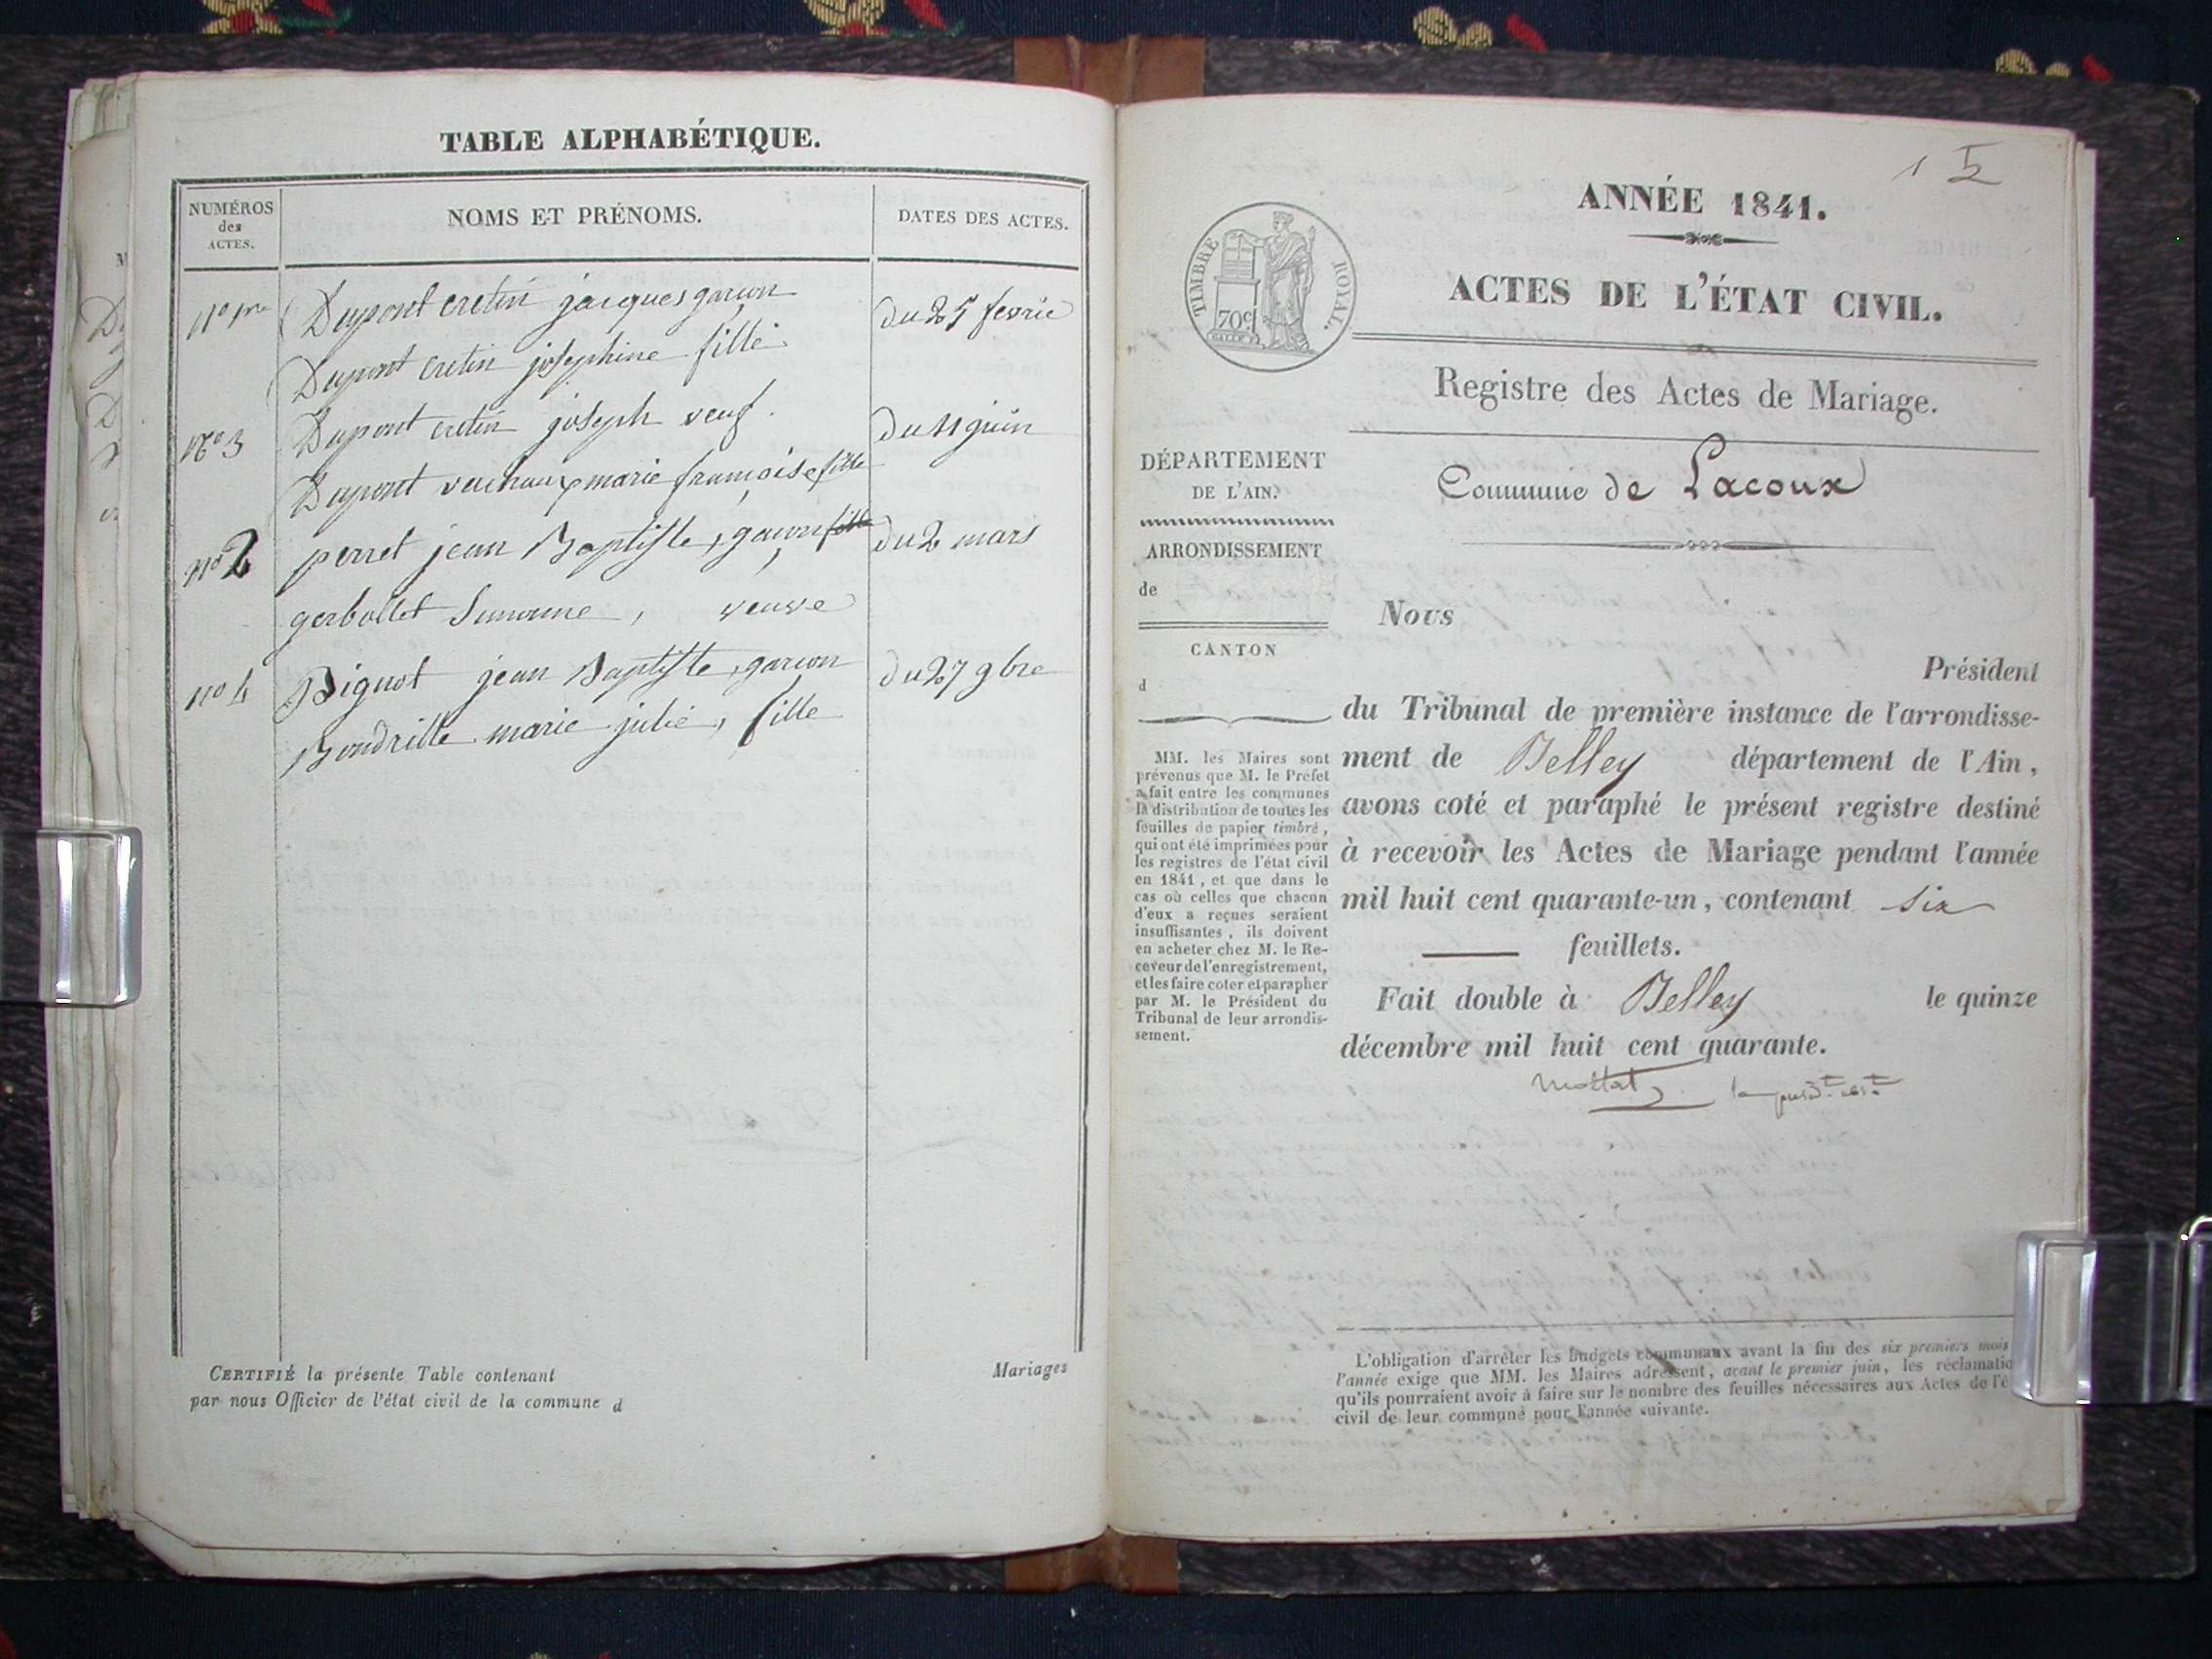 TABLE ALPHABÉTIQUE.
NUMÉROS
des
ACTES.
NOMS ET PRÉNOMS.
DATES DES ACTES.
Dupont cretin jacques garcon
du 25 fevrie
Dupont cretin josephine fille
no 3
Dupont cretin joseph veuf.
du 11 juin
Dupont vuchaux marie françoise fille
no 2
perret jean Baptiste, garcon fille
du 2 mars
gerbollet Suzanne, veuve
no 4
Pignot jean Baptiste, garcon
du 27 9bre
Bondrille marie julie, fille
CERTIFIÉ la présente Table contenant
par nous Officier de l'état civil de la commune d
Mariages
1
ANNÉE 1841.
TIMBRE ROYAL.
70c
ACTES DE L'ÉTAT CIVIL.
Registre des Actes de Mariage.
DÉPARTEMENT
DE L'AIN.
ARRONDISSEMENT
de
CANTON
d
MM. les Maires sont
prévenus que M. le Préfet
a fait entre les communes
la distribution de toutes les
feuilles de papier timbré,
qui ont été imprimées pour
les registres de l'état civil
en 1841, et que dans le
cas où celles que chacun
d'eux a reçues seraient
insuffisantes, ils doivent
en acheter chez M. le Re-
ceveur de l'enregistrement,
et les faire coter et parapher
par M. le Président du
Tribunal de leur arrondis-
sement.
Commune de Lacoux
Nous
Président
du Tribunal de première instance de l'arrondisse-
ment de Belley département de l'Ain,
avons coté et paraphé le présent registre destiné
à recevoir les Actes de Mariage pendant l'année
mil huit cent quarante-un, contenant six
feuillets.
Fait double à Belley le quinze
décembre mil huit cent quarante.
L'obligation d'arrêter les budgets communaux avant la fin des six premiers mois
l'année exige que MM. les Maires adressent, avant le premier juin, les réclamatio
qu'ils pourraient avoir à faire sur le nombre des feuilles nécessaires aux Actes de l'é
civil de leur commune pour l'année suivante.